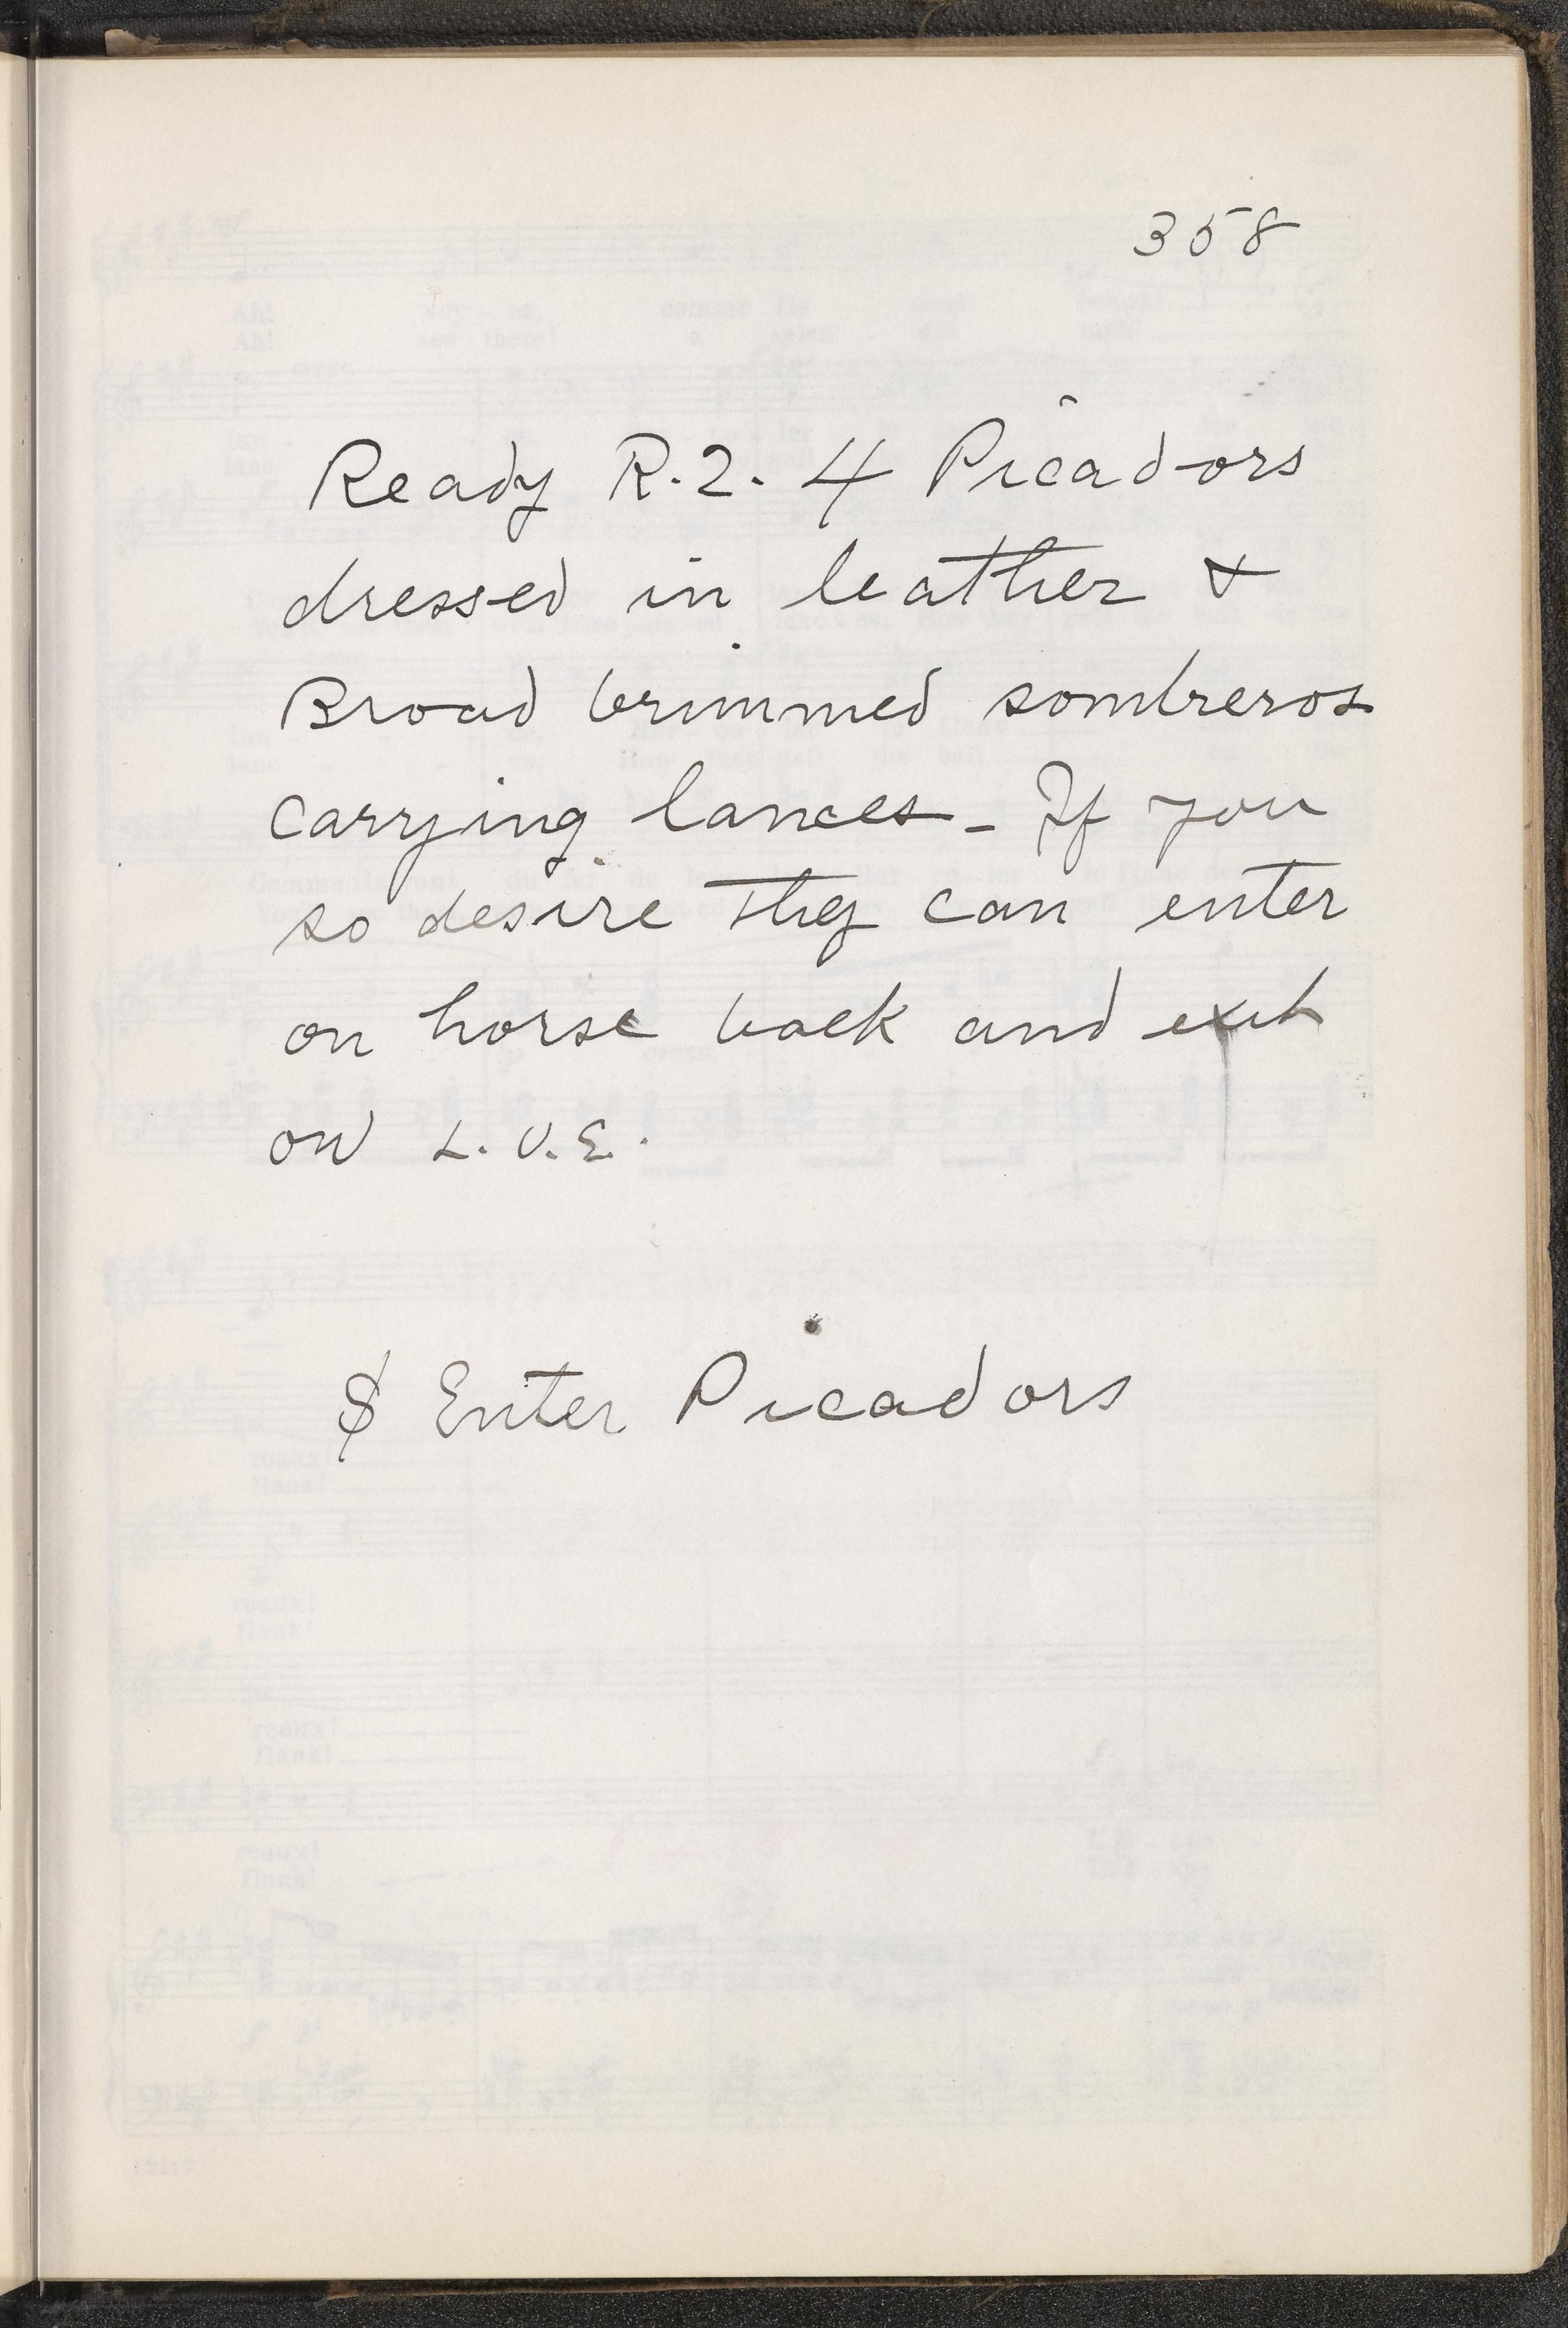 358
Ready R.2. 4 Picadors
dressed in leather &
Broad brimmed sombreros
carrying lances - If you
so desire they can enter
on horse back and exit
on L.U.E.
$ Enter Picadors